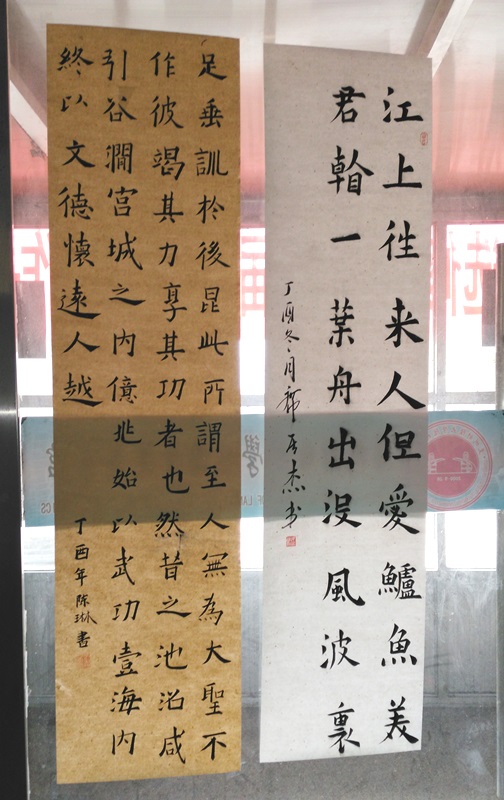 江上往来人但愛鱸魚美
君看一葉舟出没風波裏
丁酉冬月
杰书
足垂訓於後昆此所謂至人無為大聖不
作彼竭其力享其功者也然昔之池沼咸
引谷澗宮城之内億兆始以武功壹海内
終以文德懷遠人越
丁酉年陈琳書